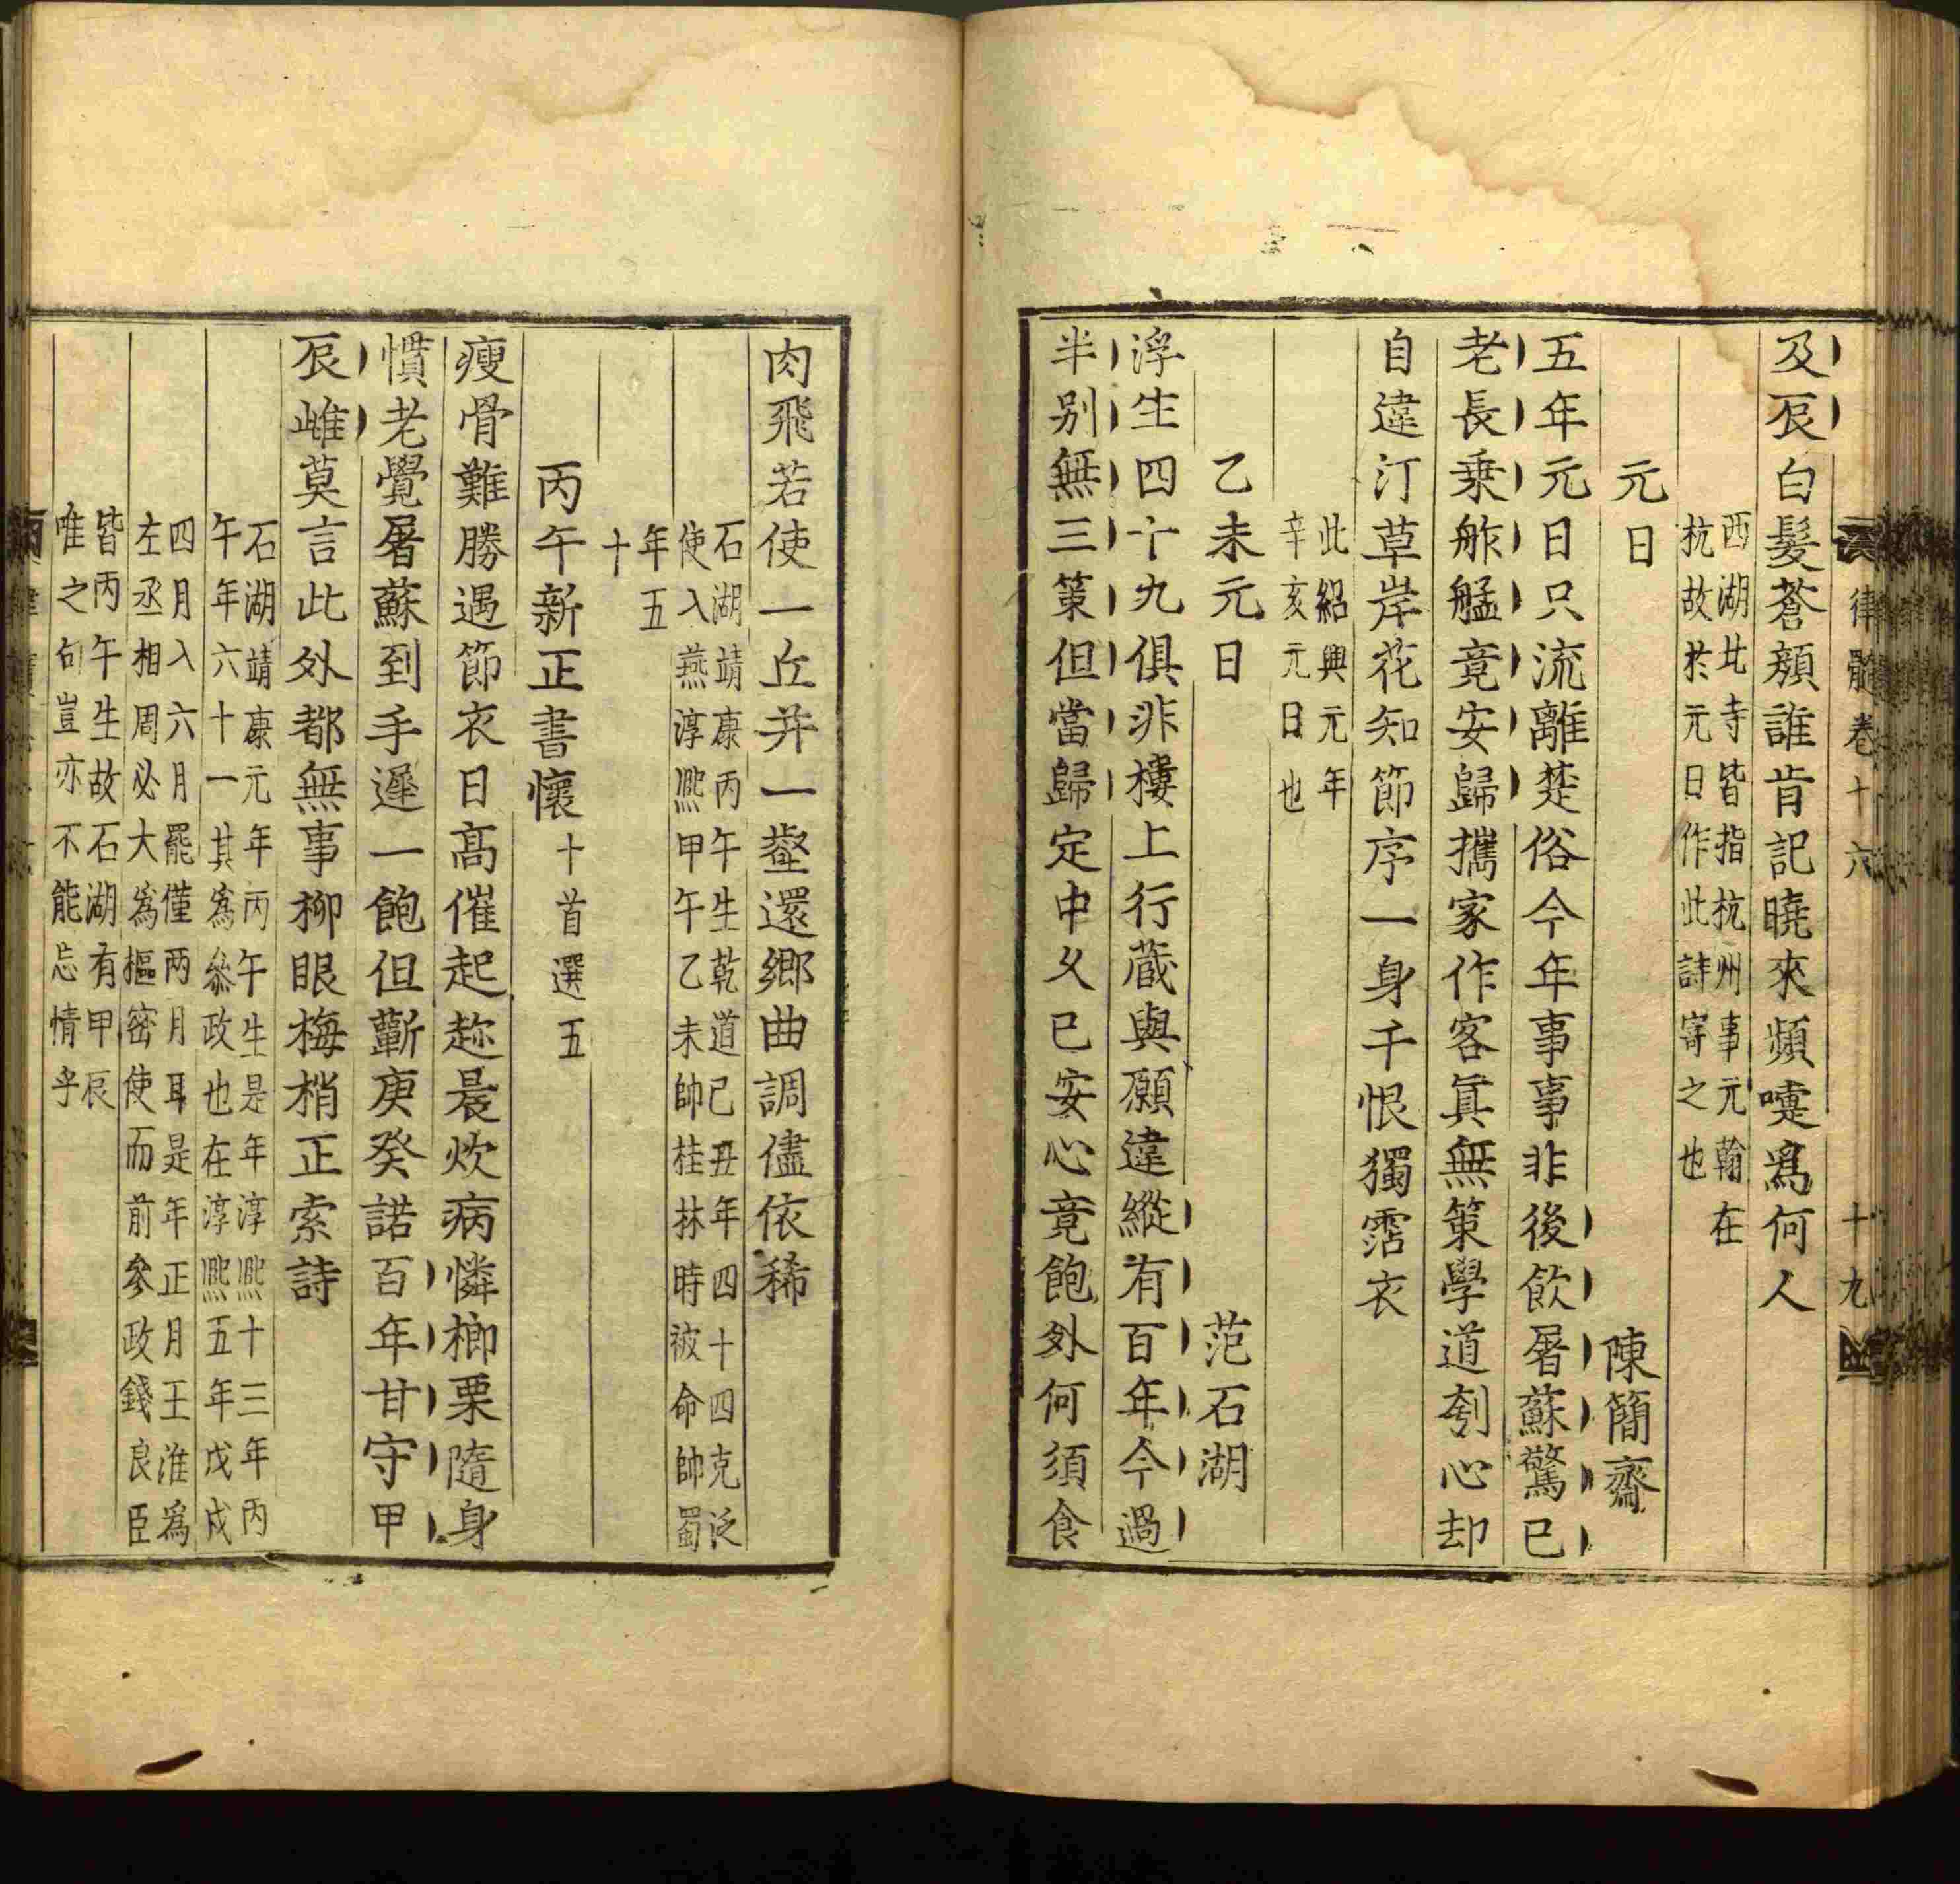 及辰白髮蒼顏誰肯記曉來頻嚏爲何人
西湖北寺皆指杭州事元翰在
杭故於元日作此詩寄之也
元日 陳簡齋
五年元日只流離楚俗今年事事非後飲屠蘇驚已
老長乗舴艋竟安歸攜家作客眞無策學道刳心却
自違汀草岸花知節序一身千恨獨霑衣
此紹興元年
辛亥元日也
乙未元日 范石湖
浮生四十九俱非樓上行藏與願違縱有百年今過
半别無三策但當歸定中乆已安心竟飽外何須食
律髓卷十六 十九
肉飛若使一丘并一壑還鄉曲調儘依稀
石湖靖康丙午生乾道己丑年四十四克泛
使入燕淳熙甲午乙未帥桂林時被命帥蜀
年五
十
丙午新正書懷十首選五
瘦骨難勝遇節衣日高催起趂晨炊病憐榔栗隨身
慣老覺屠蘇到手遲一飽但蘄庚癸諾百年甘守甲
辰雌莫言此外都無事柳眼梅梢正索詩
石湖靖康元年丙午生是年淳熙十三年丙
午年六十一其爲叅政也在淳熙五年戊戌
四月入六月罷僅兩月耳是年正月王淮爲
左丞相周必大爲樞密使而前參政錢良臣
皆丙午生故石湖有甲辰
唯之句豈亦不能忘情乎